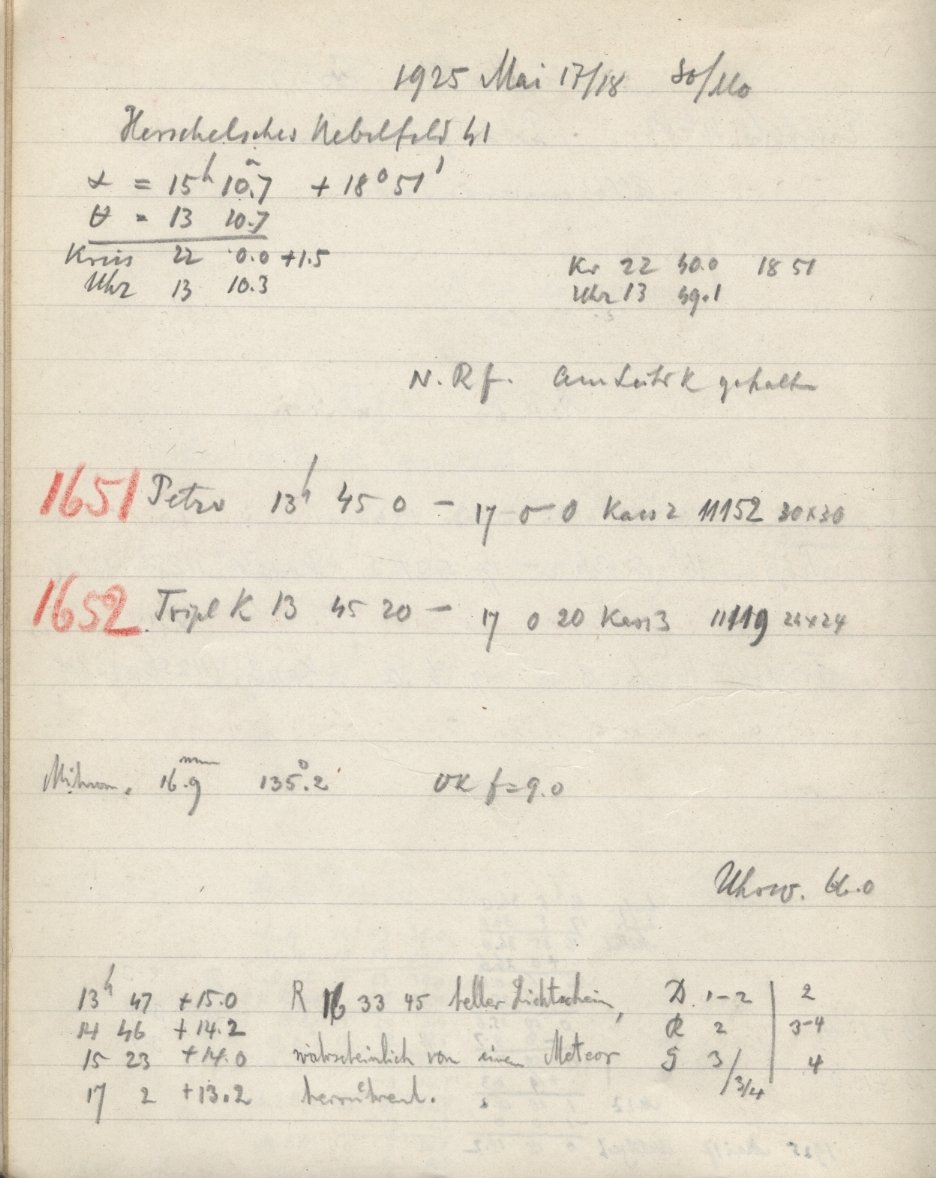 1925 Mai 17/18 So/Mo
Herschelsches Nebelfeld 41
α = 15h 10m.7 + 18° 51'
θ = 13 10.7
Kreis 22 0.0 +1.5
Uhr 13 10.3
Kr 22 40.0 18 51
Uhr 13 49.1
N. Rf. Am Leitr K gehalten
1651 Petzv 13h 45 0 – 17 0 0 Kass 2 11152 30×30
1652 Tripl K 13 45 20 – 17 0 20 Kass 3 11119 24×24
Mikrom. 16.9 mm 135°.2 OK f=9.0
Uhrw. 66.0
13h 47 +15.0 R 16 33 45 heller Lichtschein, D 1-2 | 2
14 46 +14.2 R 2 | 3-4
15 23 +14.0 wahrscheinlich von einem Meteor G 3/3/4 | 4
17 2 +13.2 herrührend.